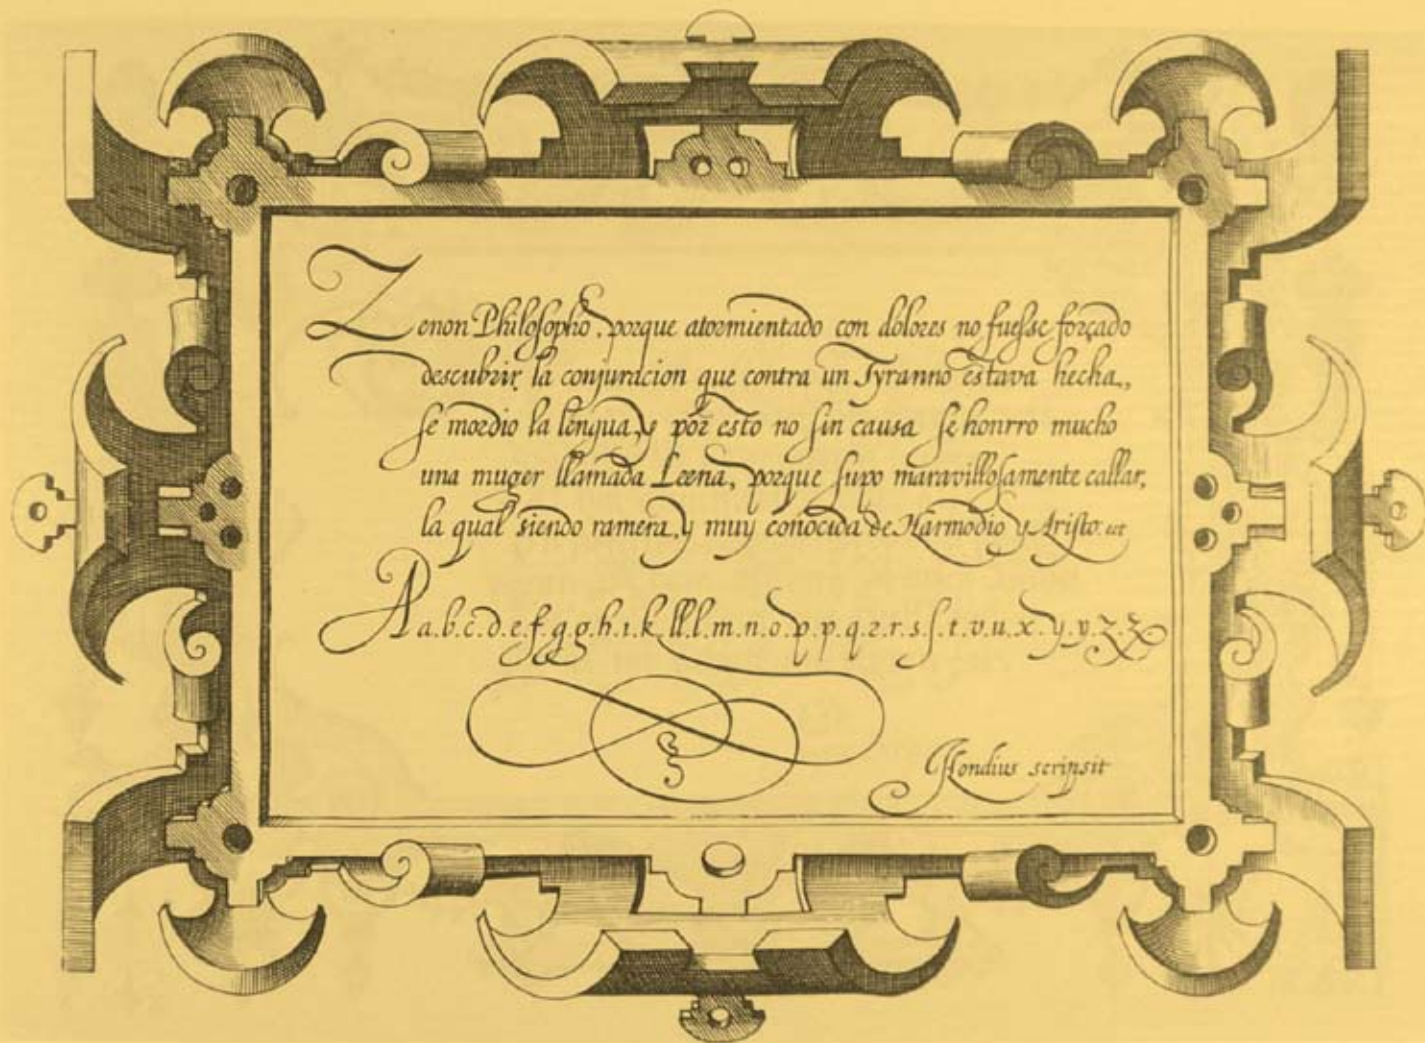 Zenon Philosopho, porque atormientado con dolores no fuesse forçado
descubrir la conjuracion que contra un Tyranno estava hecha,
se mordio la lengua, y por esto no sin causa se honrro mucho
una muger llamada Leena, porque supo maravillosamente callar,
la qual siendo ramera, y muy conocida de Harmodio y Aristo. ect
A a.b.c.d.e.f.g.g.h.i.k.ll.l.m.n.o.p.p.q.2.r.s.ſ.t.v.u.x.y.y.z.z
Hondius scripsit